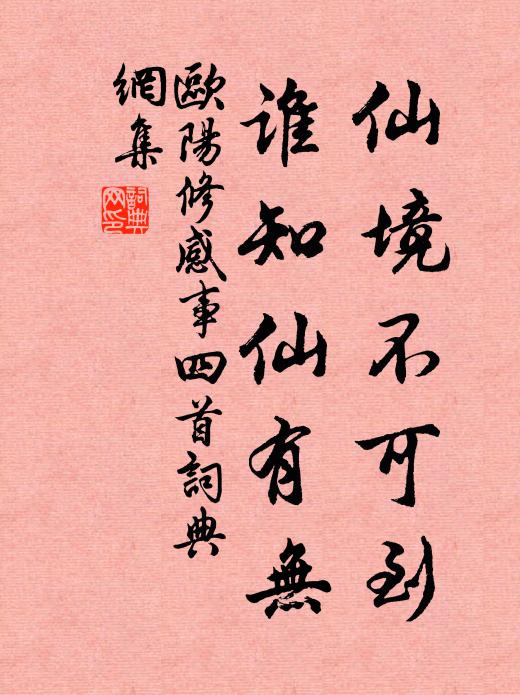 仙境不可到
誰知仙有無
歐陽修感事四首詞典
網集
詞典
网印